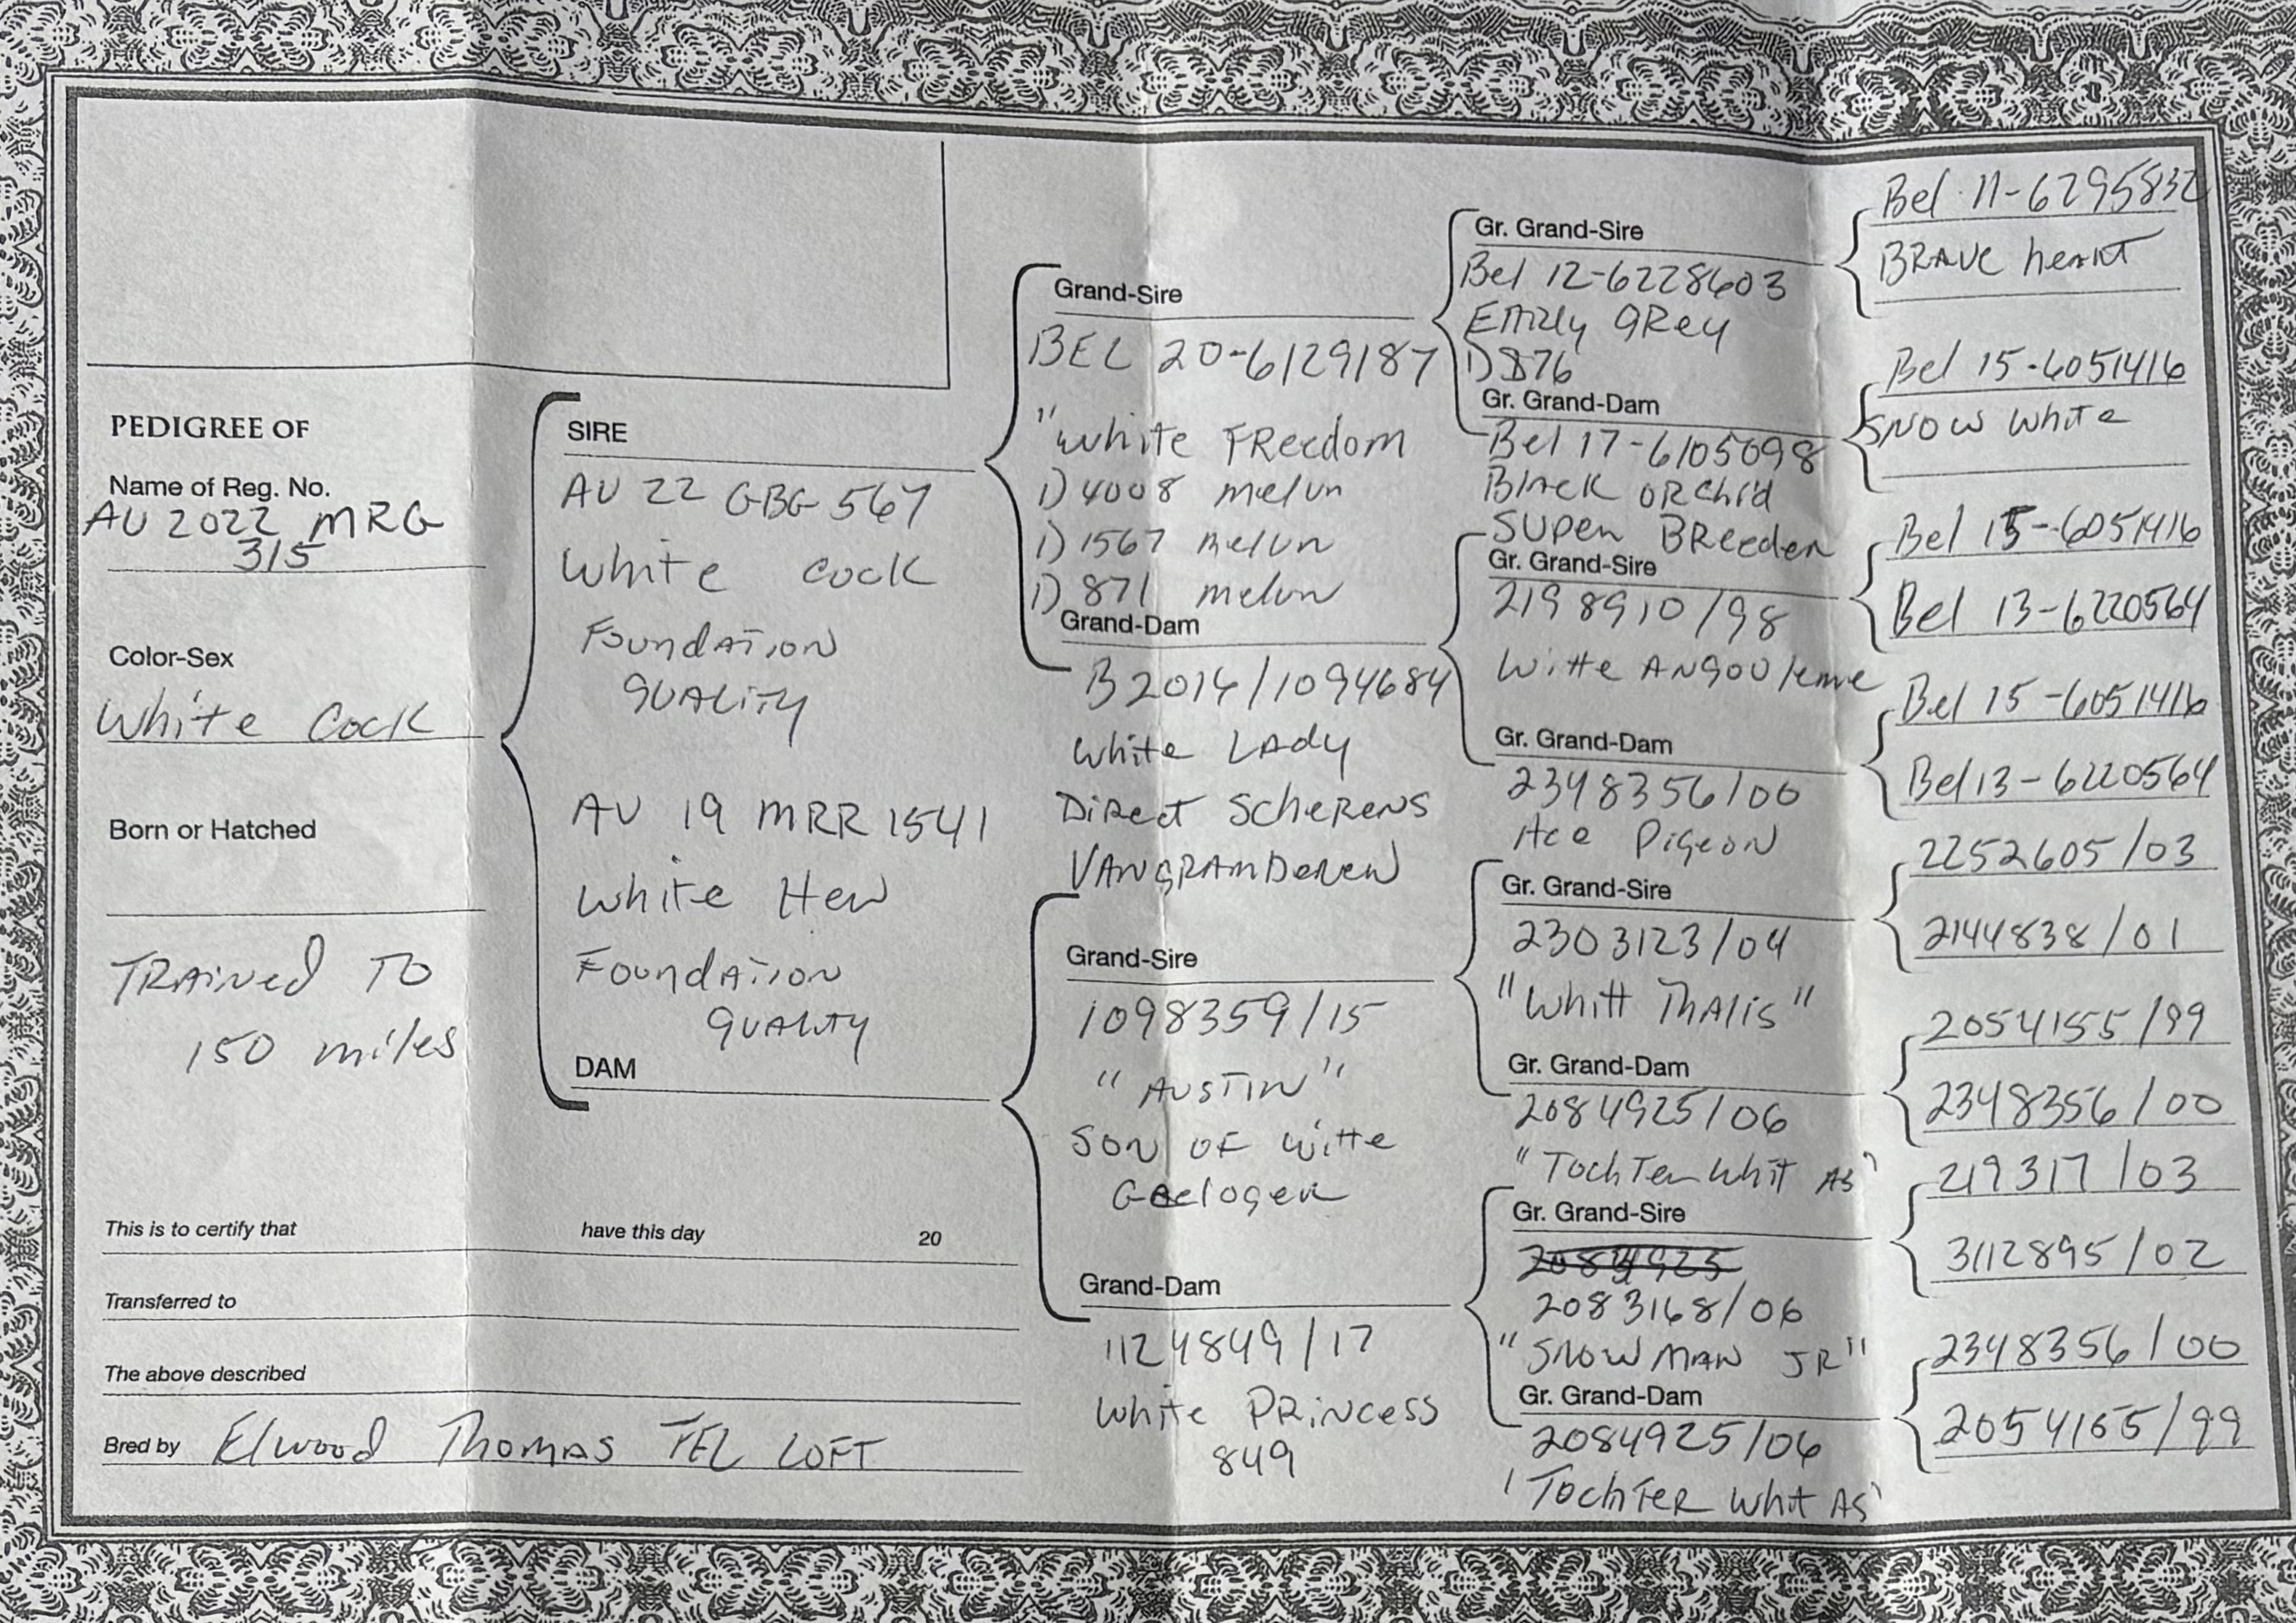 PEDIGREE OF
Name of Reg. No.
AU 2022 MRG
315
Color-Sex
White Cock
Born or Hatched
TRAINED TO
150 miles
This is to certify that have this day 20
Transferred to
The above described
Bred by Elwood Thomas TEL LOFT
SIRE
AU 22 GBG 567
White cock
Foundation
QUALITY
AU 19 MRR 1541
White Hen
Foundation
QUALITY
DAM
Grand-Sire
BEL 20-6129187
"White Freedom
1) 4008 melun
1) 1567 melun
1) 871 melun
Grand-Dam
B2014/1094684
White LAdy
Direct Scherens
VANGRAMDEREN
Grand-Sire
1098359/15
"AUSTIN"
SON OF Witte
Gaelogen
Grand-Dam
1124849/17
White PRINCESS
849
Gr. Grand-Sire
Bel 12-6228603
EMILy GRey
1) 876
Gr. Grand-Dam
Bel 17-6105098
Black ORchid
SUPER BReeder
Gr. Grand-Sire
2198910/98
Witte ANGOUleme
Gr. Grand-Dam
2348356/00
Ace Pigeon
Gr. Grand-Sire
2303123/04
"Whitt THAlis"
Gr. Grand-Dam
2084925/06
"TochTer Whit As"
Gr. Grand-Sire
2083168/06
"SNOWMAN JR"
Gr. Grand-Dam
2084925/06
'TochTER Whit AS'
Bel 11-6295832
BRAVE heart
Bel 15-6051416
SNOW White
Bel 15-6051416
Bel 13-6220564
Bel 15-6051416
Bel 13-6220564
2252605/03
2144838/01
2054155/99
2348356/00
219317/03
3112895/02
2348356/00
2054155/99